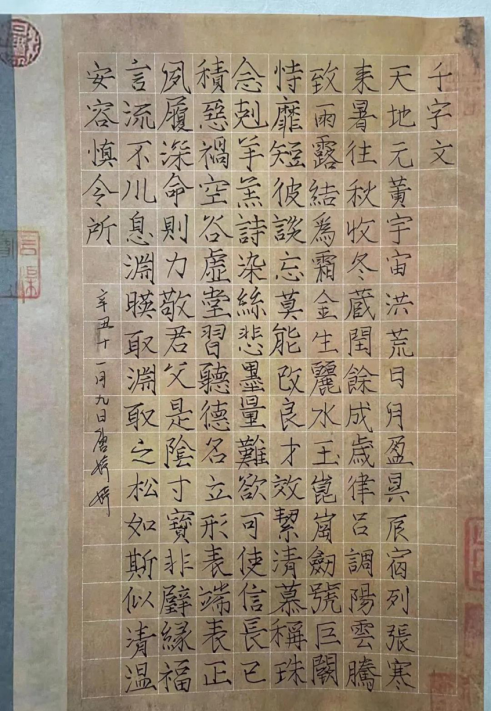 千字文
天地元黃宇宙洪荒日月盈昃辰宿列張寒
来暑往秋收冬蔵閏餘成歲律呂調陽雲騰
致雨露結為霜金生麗水玉崑崗劒號巨闕
恃靡短彼談忘莫能改良才效絜清慕稱珠
念剋羊羔詩染絲悲墨量難欲可使信長已
積惡禍空谷虛堂習聽德名立形表端表正
夙履深命則力敬君父是陰寸寶非璧緣福
言流不川息淵暎取淵取之松如斯似清温
安容慎令所
辛丑十一月九日唐